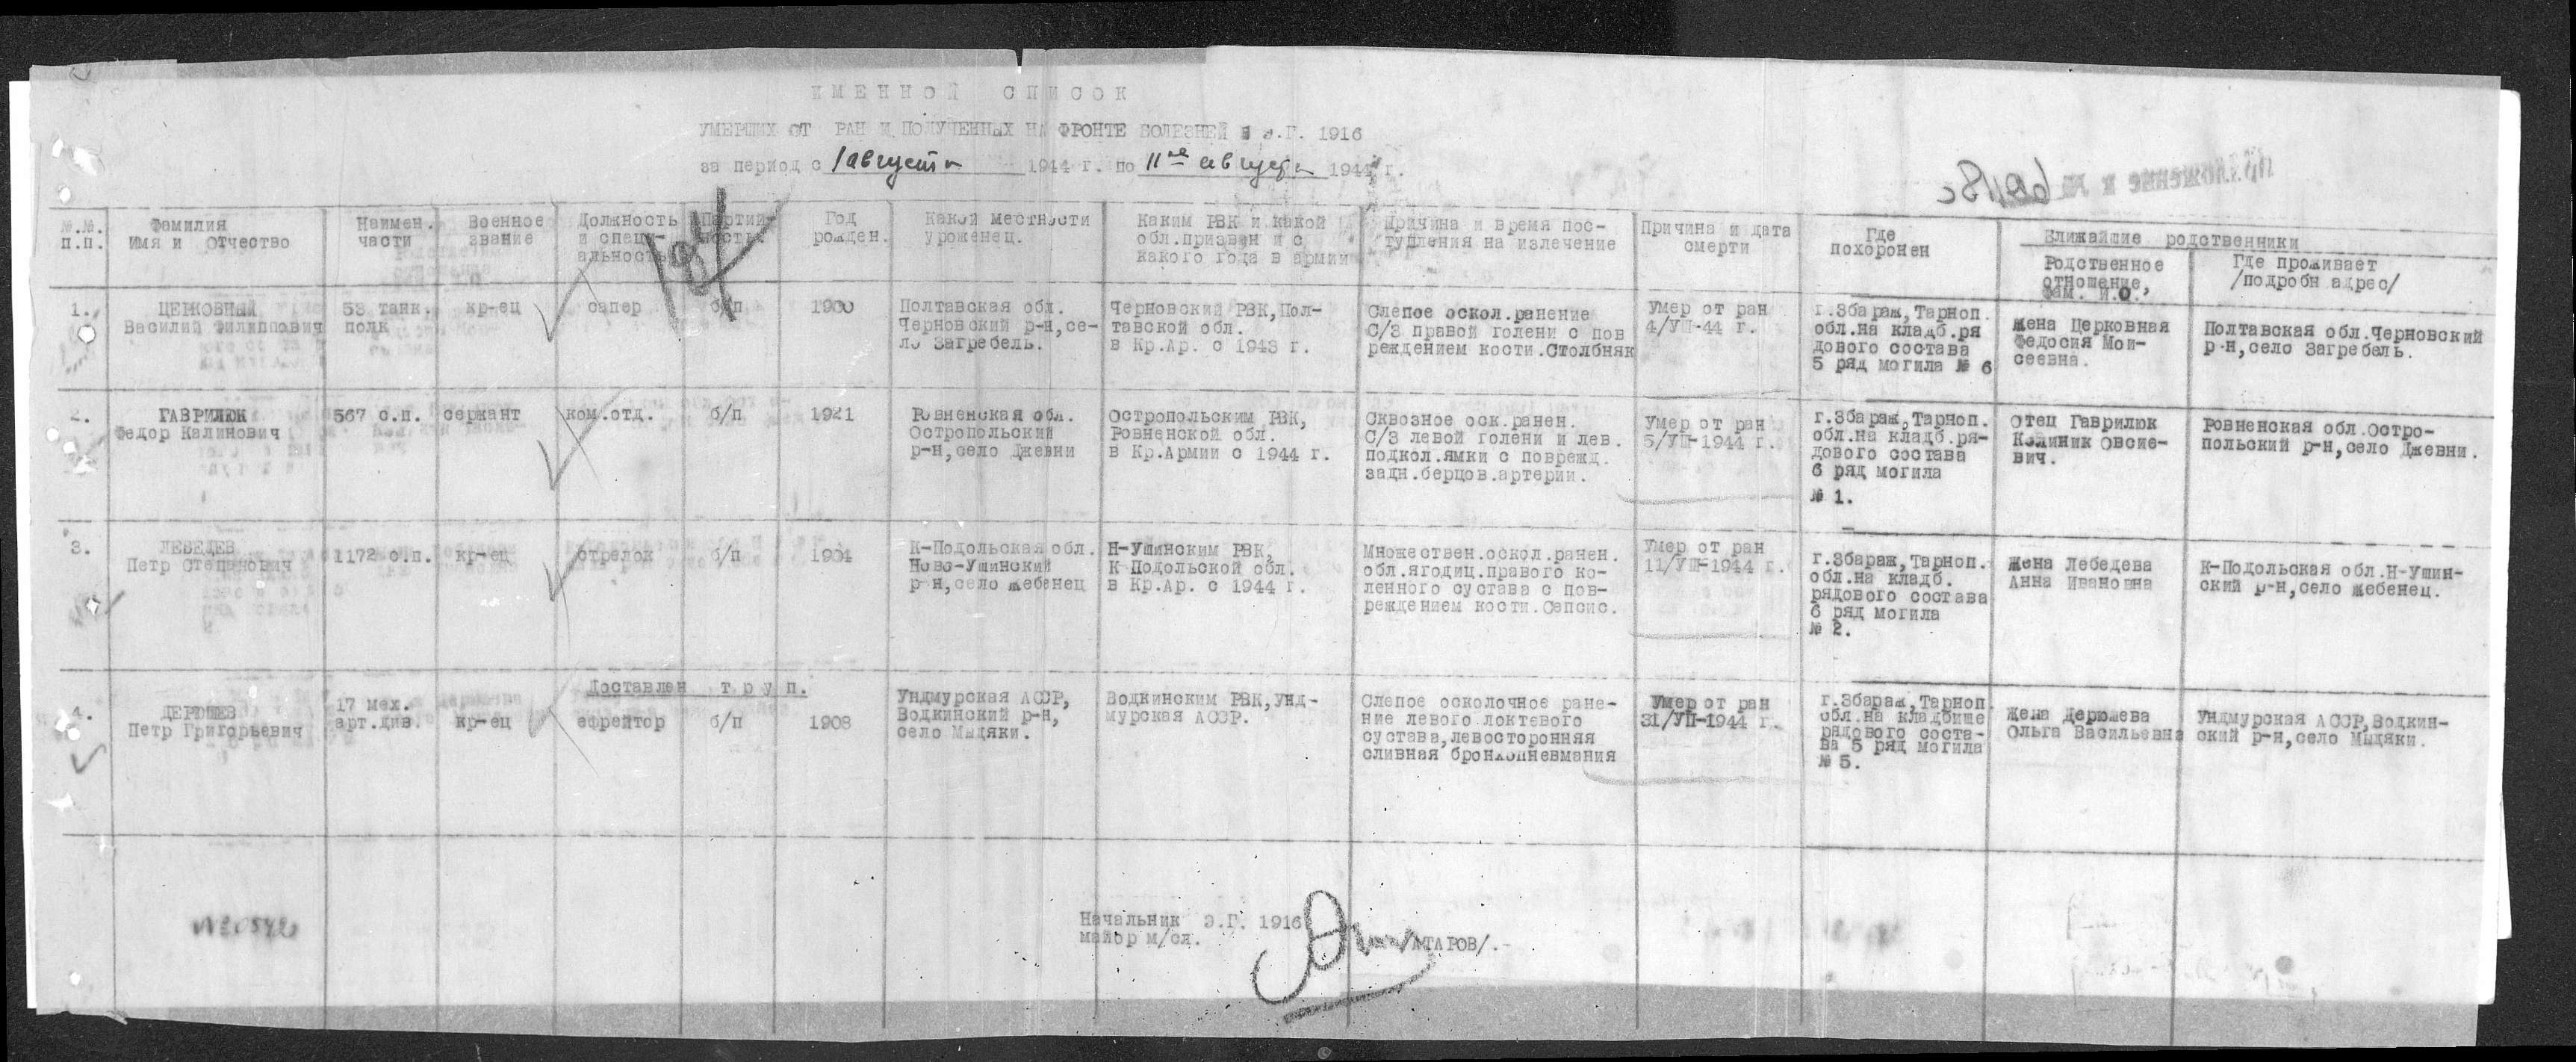 ИМЕННОЙ СПИСОК
УМЕРШИХ ОТ РАН И ПОЛУЧЕННЫХ НА ФРОНТЕ БОЛЕЗНЕЙ В Э.Г. 1916
за период с 1 августа 1944 г. по 11е августа 1944 г.
Приложение к №
184
№.№. п.п.
Фамилия
Имя и Отчество
Наимен.
части
Военное
звание
Должность
и специ-
альность
Партий-
ность
Год
рожден.
Какой местности
уроженец.
Каким РВК и какой
обл.призван и с
какого года в армии
Причина и время пос-
тупления на излечение
Причина и дата
смерти
Где
похоронен
Ближайшие родственники
Родственное
отношение,
Фам. И.О.
Где проживает
/подробн адрес/
1.
ЦЕРКОВНЫЙ
Василий Филиппович
53 танк.
полк
кр-ец
сапер
б/п
1900
Полтавская обл.
Черновский р-н,се-
ло Загребель.
Черновский РВК,Пол-
тавской обл.
в Кр.Ар. с 1943 г.
Слепое оскол.ранение
С/З правой голени с пов
реждением кости.Столбняк
Умер от ран
4/УШ-44 г.
г.Збараж,Тарноп.
обл.на кладб.ря
дового состава
5 ряд могила № 6
Жена Церковная
Федосия Мои-
сеевна.
Полтавская обл.Черновский
р-н,село Загребель.
2.
ГАВРИЛЮК
Федор Калинович
567 с.п.
сержант
ком.отд.
б/п
1921
Ровненская обл.
Остропольский
р-н,село Джевни
Остропольским РВК,
Ровненской обл.
в Кр.Армии с 1944 г.
Сквозное оск.ранен.
С/З левой голени и лев.
подкол.ямки с поврежд.
задн.берцов.артерии.
Умер от ран
5/УШ-1944 г.
г.Збараж,Тарноп.
обл.на кладб.ря-
дового состава
6 ряд могила
№ 1.
Отец Гаврилюк
Калиник Овсие-
вич.
Ровненская обл.Остро-
польский р-н,село Джевни.
3.
ЛЕБЕДЕВ
Петр Степанович
1172 с.п.
кр-ец
стрелок
б/п
1904
К-Подольская обл.
Ново-Ушинский
р-н,село Жебенец
Н-Ушинским РВК,
К-Подольской обл.
в Кр.Ар. с 1944 г.
Множествен.оскол.ранен.
обл.ягодиц.правого ко-
ленного сустава с пов-
реждением кости.Сепсис.
Умер от ран
11/УШ-1944 г.
г.Збараж,Тарноп.
обл.на кладб.
рядового состава
6 ряд могила
№ 2.
Жена Лебедева
Анна Ивановна
К-Подольская обл.Н-Ушин-
ский р-н,село Жебенец.
Доставлен труп.
4.
ДЕРЮШЕВ
Петр Григорьевич
17 мех.
арт.див.
кр-ец
ефрейтор
б/п
1908
Ундмурская АССР,
Водкинский р-н,
село Мыдяки.
Водкинским РВК,Унд-
мурская АССР.
Слепое осколочное ране-
ние левого локтевого
сустава,левосторонняя
сливная бронхопневмания
Умер от ран
31/УП-1944 г.
г.Збараж,Тарноп
обл.на кладбище
рядового соста-
ва 5 ряд могила
№ 5.
Жена Дерюшева
Ольга Васильевна
Ундмурская АССР,Водкин-
ский р-н,село Мыдяки.
Начальник Э.Г. 1916
майор м/сл.